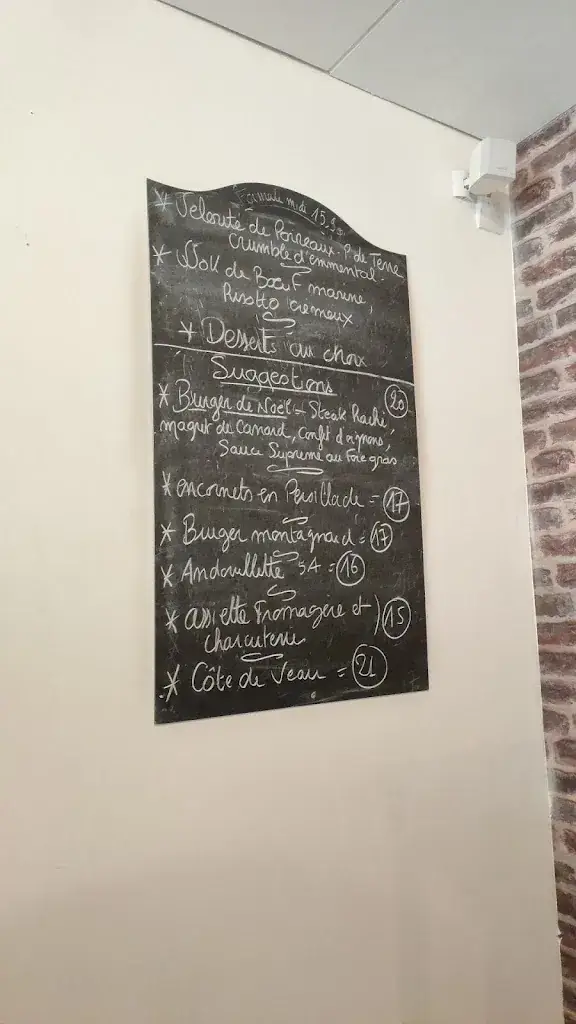 Formule midi 15,90
* Velouté de Poireaux - P. de Terre
crumble d'emmental -
* Wok de Bœuf marine,
Risotto crémeux
* Desserts au choix
Suggestions
* Burger de Noël - Steak Haché, 20
magret de Canard, Confit d'oignons,
Sauce Supreme au Foie gras
* encornets en Persillade = 17
* Burger montagnard = 17
* Andouillette 5A = 16
* assiette Fromagere et ) 15
charcuterie
* Côte de Veau = 21